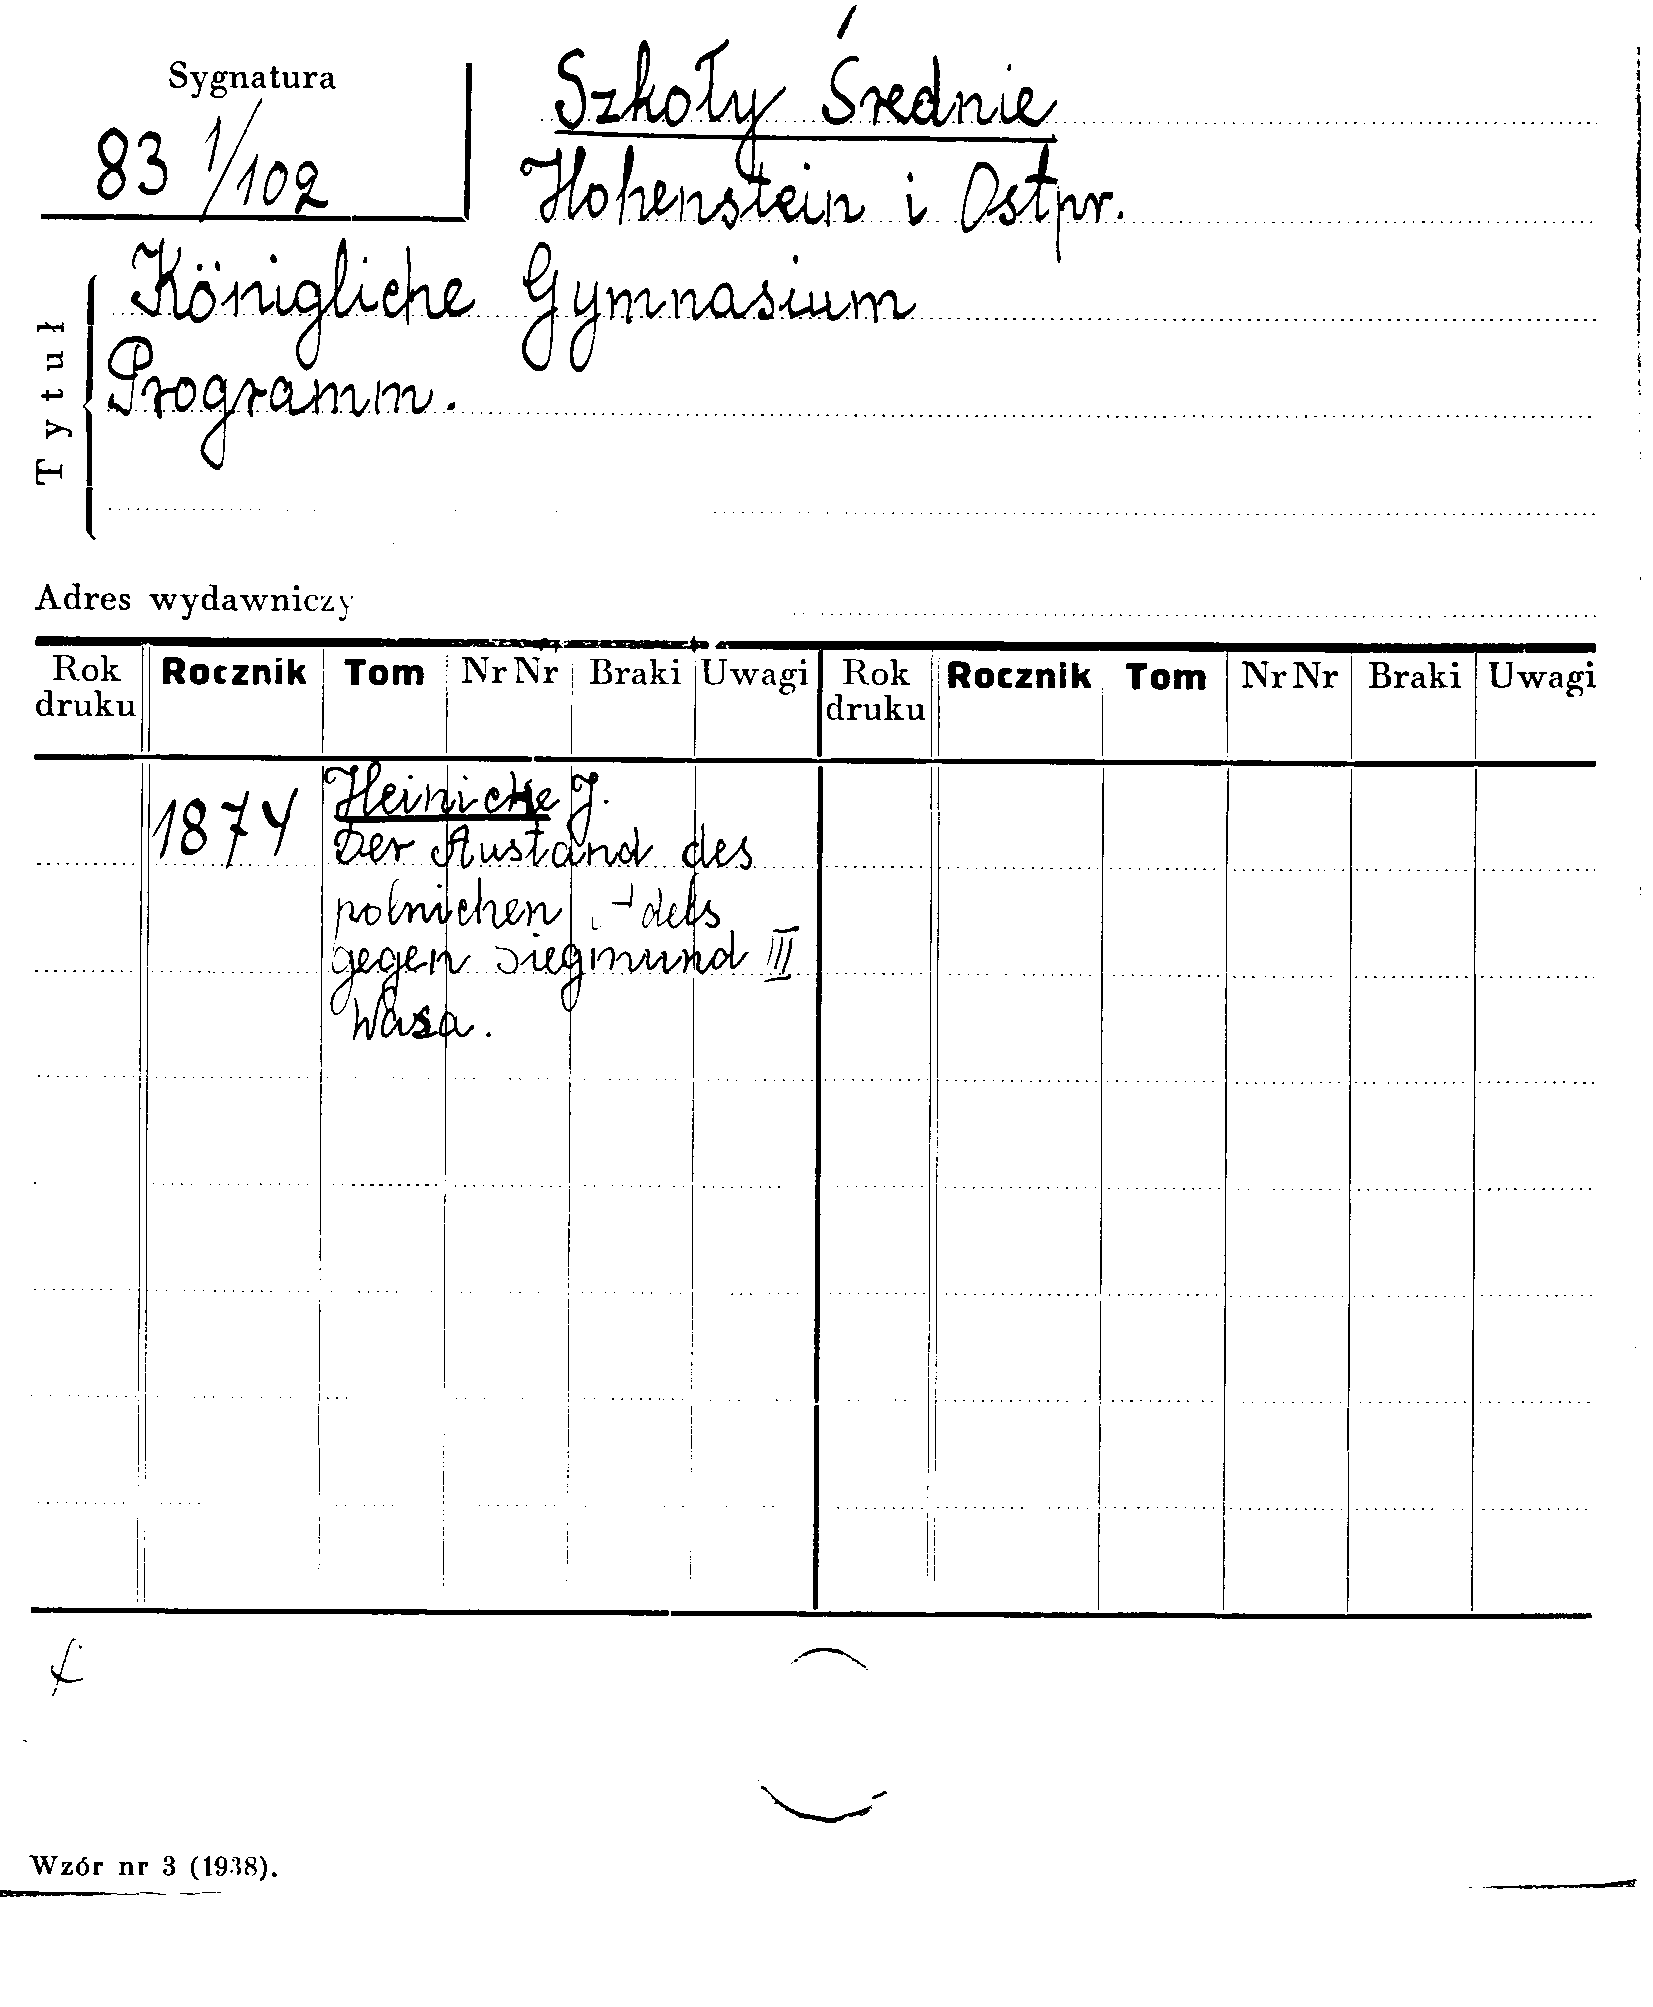 Sygnatura
83 1/102
Szkoły Średnie
Hohenstein i Ostpr.
Tytuł
Königliche Gymnasium
Programm.
Adres wydawniczy
Rok druku Rocznik Tom Nr Nr Braki Uwagi Rok druku Rocznik Tom Nr Nr Braki Uwagi
1874 Heinicke J.
Der Austand des
polnichen
gegen Siegmund III
Wasa.
Wzór nr 3 (1938).